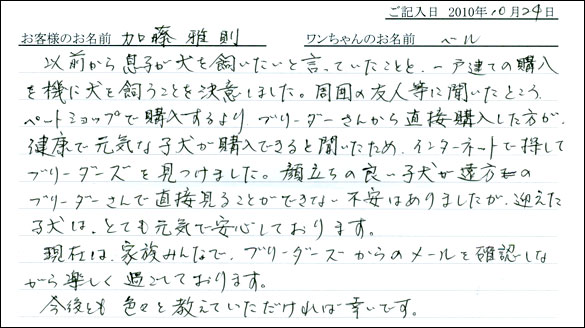 ご記入日 2010年10月24日
お客様のお名前 加藤 雅則 ワンちゃんのお名前 ベル
以前から息子が犬を飼いたいと言っていたことと、一戸建ての購入
を機に犬を飼うことを決意しました。周囲の友人等に聞いたところ
ペットショップで購入するより、ブリーダーさんから直接購入した方が、
健康で元気な子犬が購入できると聞いたため、インターネットで探して
ブリーダーズを見つけました。顔立ちの良い子犬が遠方の
ブリーダーさんで直接見ることができない不安はありましたが、迎えた
子犬は、とても元気で安心しております。
現在は、家族みんなで、ブリーダーズからのメールを確認しな
がら楽しく過ごしております。
今後とも色々と教えていただければ幸いです。